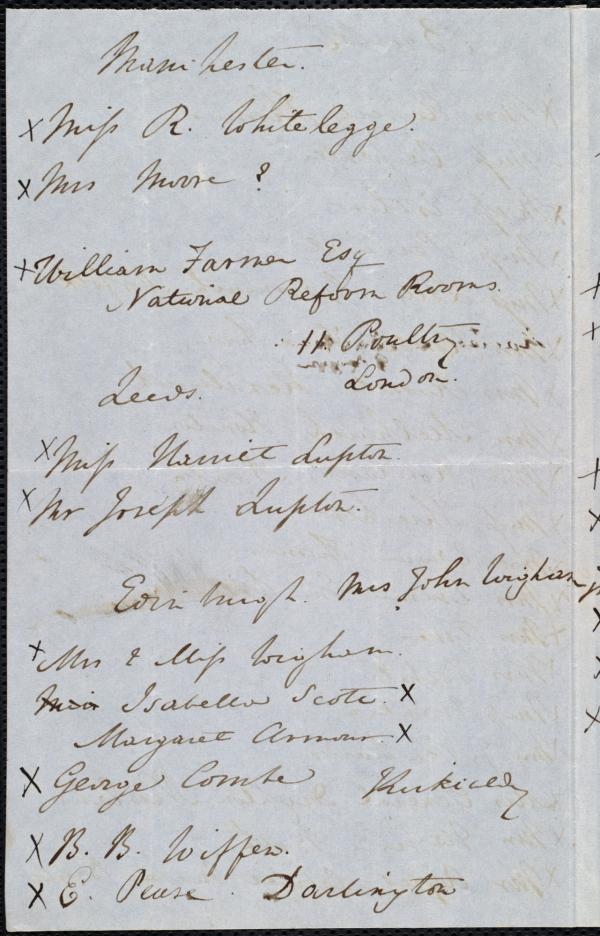 Manchester.
x Miss R. Whitelegge.
x Mrs Moore ?
x William Farmer Esq
National Reform Rooms.
11. Poultry
London.
Leeds.
x Miss Harriet Lupton.
x Mr Joseph Lupton.
Edinburgh. Mrs John Wigham
x Mrs & Miss Wigham.
Isabella Scott. x
Margaret Armour. x
x George Combe
x B. B. Wiffen.
x E. Pease. Darlington